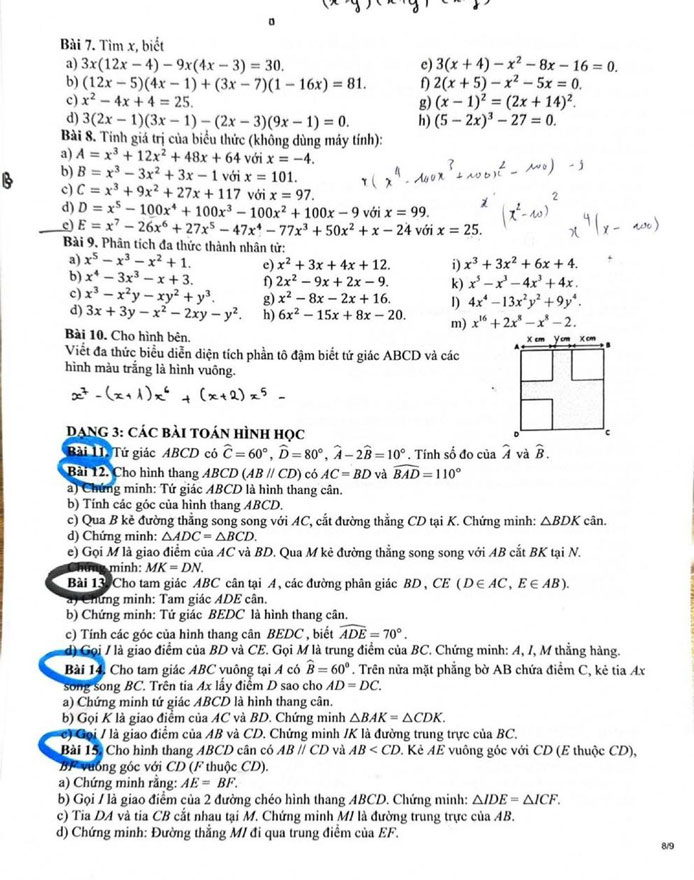 Bài 7. Tìm x, biết
a) 3x(12x − 4) − 9x(4x − 3) = 30.
e) 3(x + 4) − x² − 8x − 16 = 0.
b) (12x − 5)(4x − 1) + (3x − 7)(1 − 16x) = 81.
f) 2(x + 5) − x² − 5x = 0.
c) x² − 4x + 4 = 25.
g) (x − 1)² = (2x + 14)².
d) 3(2x − 1)(3x − 1) − (2x − 3)(9x − 1) = 0.
h) (5 − 2x)³ − 27 = 0.
Bài 8. Tính giá trị của biểu thức (không dùng máy tính):
a) A = x³ + 12x² + 48x + 64 với x = −4.
b) B = x³ − 3x² + 3x − 1 với x = 101.
c) C = x³ + 9x² + 27x + 117 với x = 97.
d) D = x⁵ − 100x⁴ + 100x³ − 100x² + 100x − 9 với x = 99.
e) E = x⁷ − 26x⁶ + 27x⁵ − 47x⁴ − 77x³ + 50x² + x − 24 với x = 25.
Bài 9. Phân tích đa thức thành nhân tử:
a) x⁵ − x³ − x² + 1.
e) x² + 3x + 4x + 12.
i) x³ + 3x² + 6x + 4.
b) x⁴ − 3x³ − x + 3.
f) 2x² − 9x + 2x − 9.
k) x⁵ − x³ − 4x³ + 4x.
c) x³ − x²y − xy² + y³.
g) x² − 8x − 2x + 16.
l) 4x⁴ − 13x²y² + 9y⁴.
d) 3x + 3y − x² − 2xy − y².
h) 6x² − 15x + 8x − 20.
m) x¹⁶ + 2x⁸ − x⁸ − 2.
Bài 10. Cho hình bên.
Viết đa thức biểu diễn diện tích phần tô đậm biết tứ giác ABCD và các
hình màu trắng là hình vuông.
X cm Y cm X cm
A B
D C
x⁷ − (x+1)x⁶ + (x+2)x⁵ −
DẠNG 3: CÁC BÀI TOÁN HÌNH HỌC
Bài 11. Tứ giác ABCD có Ĉ = 60°, D̂ = 80°, Â − 2B̂ = 10°. Tính số đo của Â và B̂.
Bài 12. Cho hình thang ABCD (AB // CD) có AC = BD và BAD = 110°
a) Chứng minh: Tứ giác ABCD là hình thang cân.
b) Tính các góc của hình thang ABCD.
c) Qua B kẻ đường thẳng song song với AC, cắt đường thẳng CD tại K. Chứng minh: △BDK cân.
d) Chứng minh: △ADC = △BCD.
e) Gọi M là giao điểm của AC và BD. Qua M kẻ đường thẳng song song với AB cắt BK tại N.
Chứng minh: MK = DN.
Bài 13. Cho tam giác ABC cân tại A, các đường phân giác BD, CE (D ∈ AC, E ∈ AB).
a) Chứng minh: Tam giác ADE cân.
b) Chứng minh: Tứ giác BEDC là hình thang cân.
c) Tính các góc của hình thang cân BEDC, biết ADE = 70°.
d) Gọi I là giao điểm của BD và CE. Gọi M là trung điểm của BC. Chứng minh: A, I, M thẳng hàng.
Bài 14. Cho tam giác ABC vuông tại A có B̂ = 60⁰. Trên nửa mặt phẳng bờ AB chứa điểm C, kẻ tia Ax
song song BC. Trên tia Ax lấy điểm D sao cho AD = DC.
a) Chứng minh tứ giác ABCD là hình thang cân.
b) Gọi K là giao điểm của AC và BD. Chứng minh △BAK = △CDK.
c) Gọi I là giao điểm của AB và CD. Chứng minh IK là đường trung trực của BC.
Bài 15. Cho hình thang ABCD cân có AB // CD và AB < CD. Kẻ AE vuông góc với CD (E thuộc CD),
BF vuông góc với CD (F thuộc CD).
a) Chứng minh rằng: AE = BF.
b) Gọi I là giao điểm của 2 đường chéo hình thang ABCD. Chứng minh: △IDE = △ICF.
c) Tia DA và tia CB cắt nhau tại M. Chứng minh MI là đường trung trực của AB.
d) Chứng minh: Đường thẳng MI đi qua trung điểm của EF.
8/9